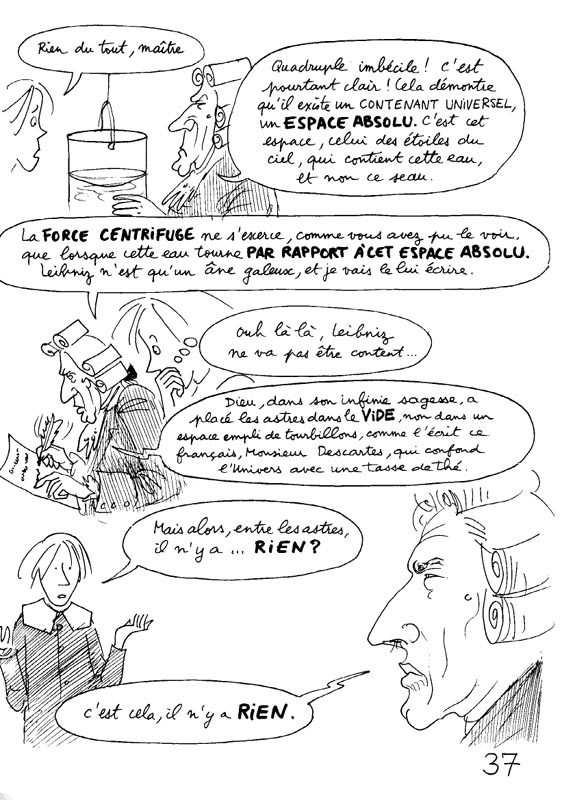 Rien du tout, maître
Quadruple imbécile ! C'est
pourtant clair ! Cela démontre
qu'il existe un CONTENANT UNIVERSEL,
un ESPACE ABSOLU. C'est cet
espace, celui des étoiles du
ciel, qui contient cette eau,
et non ce seau.
La FORCE CENTRIFUGE ne s'exerce, comme vous avez pu le voir,
que lorsque cette eau tourne PAR RAPPORT À CET ESPACE ABSOLU.
Leibniz n'est qu'un âne galeux, et je vais le lui écrire.
Ouh là là, Leibniz
ne va pas être content...
Dieu, dans son infinie sagesse, a
placé les astres dans le VIDE, non dans un
espace empli de tourbillons, comme l'écrit ce
français, Monsieur Descartes, qui confond
l'Univers avec une tasse de thé.
Mais alors, entre les astres,
il n'y a ... RIEN ?
c'est cela, il n'y a RIEN.
37